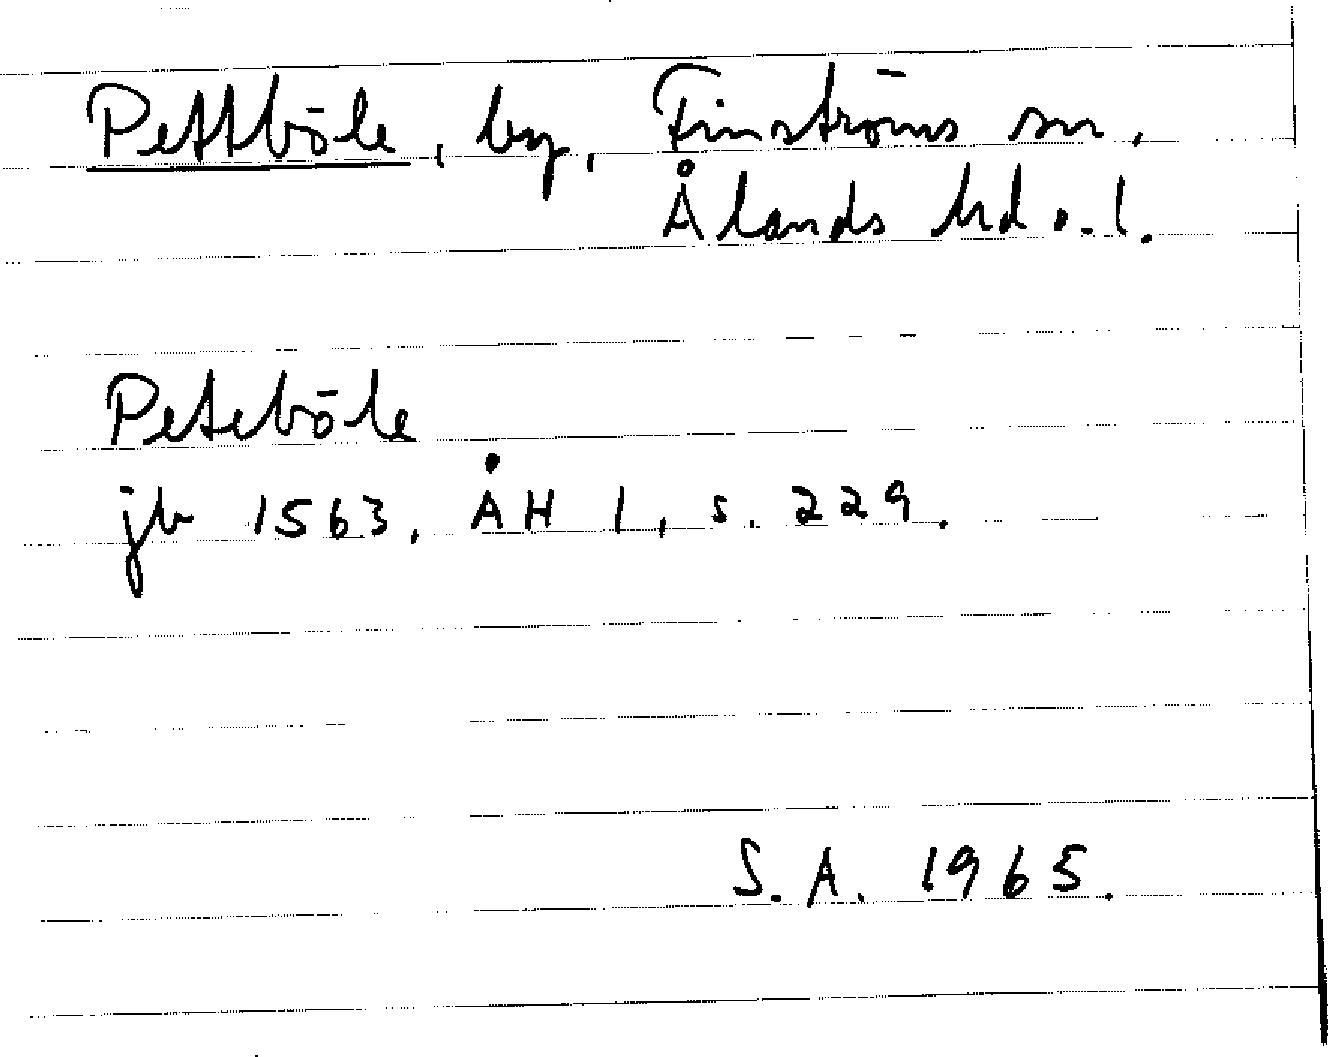 Pettböle, by, Finströms sn,
Ålands hd o. l.
Peteböle
jb 1563, ÅH 1, s. 229.
S. A. 1965.